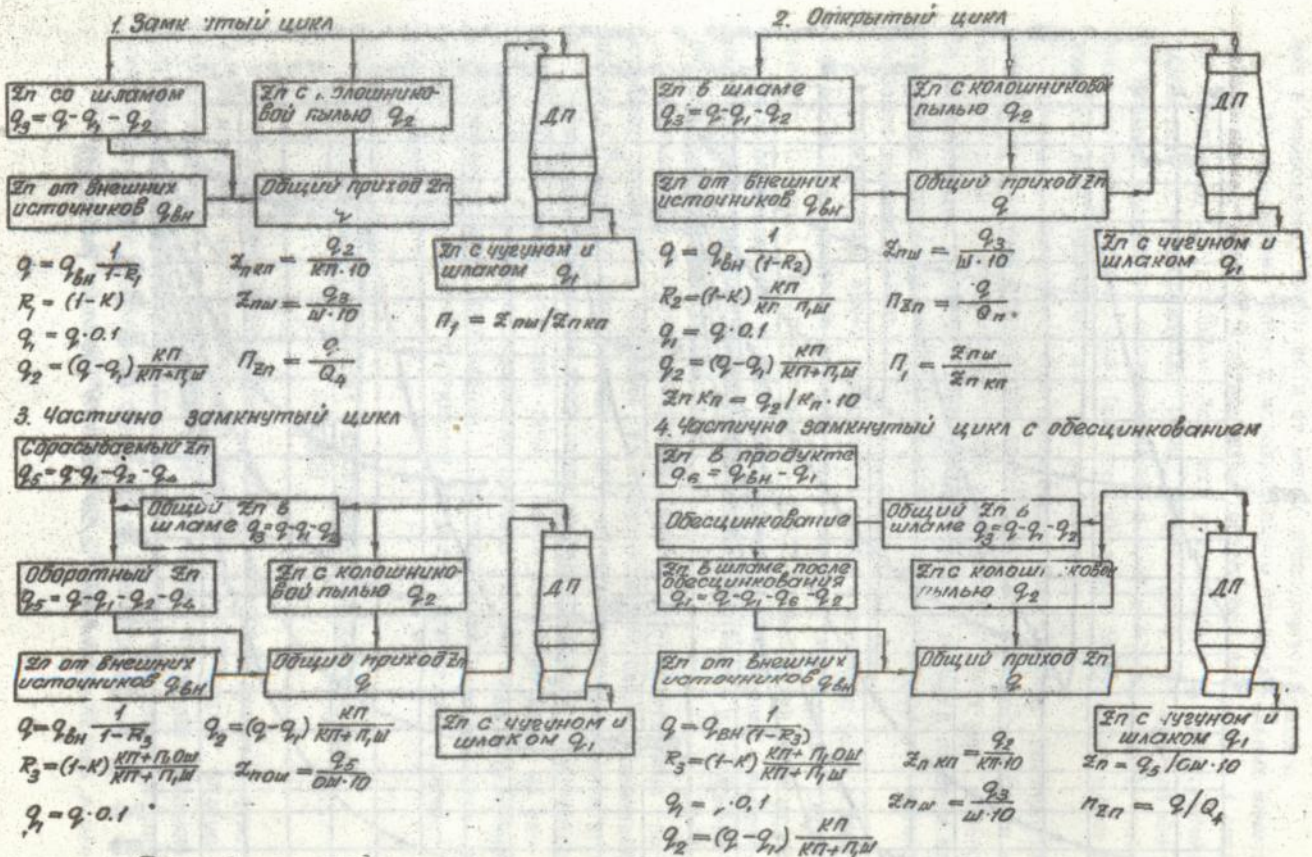 1. Замк утый цикл
Zn со шламом
q₃ = q - q₁ - q₂
Zn с олошнико-
вой пылью q₂
ДП
Zn от внешних
источников qвн
Общий приход Zn
q
Zn с чугуном и
шлаком q₁
q = qвн 1/(1-R₁)
R₁ = (1-К)
q₁ = q·0.1
q₂ = (q-q₁) КП/(КП+П₁Ш)
Zn кп = q₂/(КП·10)
Zn ш = q₃/(Ш·10)
П Zn = q/Q₄
П₁ = Zn ш/Zn кп
2. Открытый цикл
Zn в шламе
q₃ = q - q₁ - q₂
Zn с колошниковой
пылью q₂
ДП
Zn от внешних
источников qвн
Общий приход Zn
q
Zn с чугуном и
шлаком q₁
q = qвн 1/(1-R₂)
R₂ = (1-К) КП/(КП П₁Ш)
q₁ = q·0.1
q₂ = (q-q₁) КП/(КП+П₁Ш)
Zn кп = q₂/Кп·10
Zn ш = q₃/(Ш·10)
П Zn = q/Qп.
П₁ = Zn ш/Zn кп
3. Частично замкнутый цикл
Сбрасываемый Zn
q₅ = q-q₁-q₂-q₄
Общий Zn в
шламе q₃ = q-q₁-q₂
Оборотный Zn
q₅ = q-q₁-q₂-q₄
Zn с колошнико-
вой пылью q₂
ДП
Zn от внешних
источников qвн
Общий приход Zn
q
Zn с чугуном и
шлаком q₁
q = qвн 1/(1-R₃)
R₃ = (1-К) (КП+П₁ОШ)/(КП+П₁Ш)
q₁ = q·0.1
q₂ = (q-q₁) КП/(КП+П₁Ш)
Zn ош = q₅/(ОШ·10)
4. Частично замкнутый цикл с обесцинкованием
Zn в продукте
q₆ = qвн - q₁
Обесцинкование
Общий Zn в
шламе q₃ = q-q₁-q₂
Zn в шламе после
обесцинкования
q₇ = q-q₁-q₆-q₂
Zn с колош ковой
пылью q₂
ДП
Zn от внешних
источников qвн
Общий приход Zn
q
Zn с чугуном и
шлаком q₁
q = qвн 1/(1-R₃)
R₃ = (1-К) (КП+П₁ОШ)/(КП+П₁Ш)
q₁ = ·0,1
q₂ = (q-q₁) КП/(КП+П₁Ш)
Zn кп = q₂/(КП·10)
Zn ш = q₃/(Ш·10)
Zn = q₅/ОШ·10
П Zn = q/Q₄